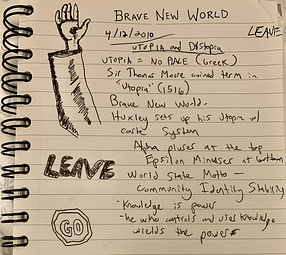 BRAVE NEW WORLD
LEAVE
4/12/2010
UTOPIA and Dystopia
UTOPIA = NO PLACE (Greek)
Sir Thomas Moore coined term in
"Utopia" (1516)
Brave New World-
Huxley sets up his Utopia w/
caste system
Alpha pluses at the top
Epsilon Minuses at bottom
LEAVE
World State Motto —
Community Identity Stability
- Knowledge is power
- he who controls and uses knowledge
wields the power
GO